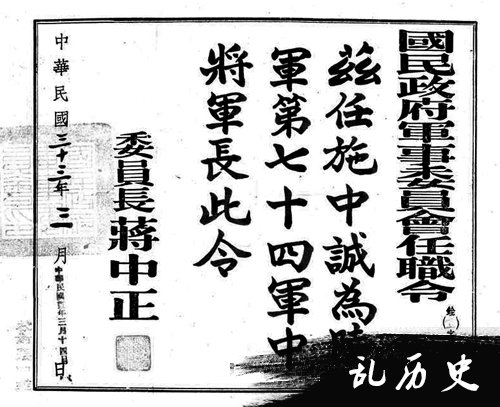 國民政府軍事委員會任職令
茲任施中誠為陸
軍第七十四軍中
將軍長此令
委員長蔣中正
中華民國三十三年三月日
中華民國年三月十四
乱历史